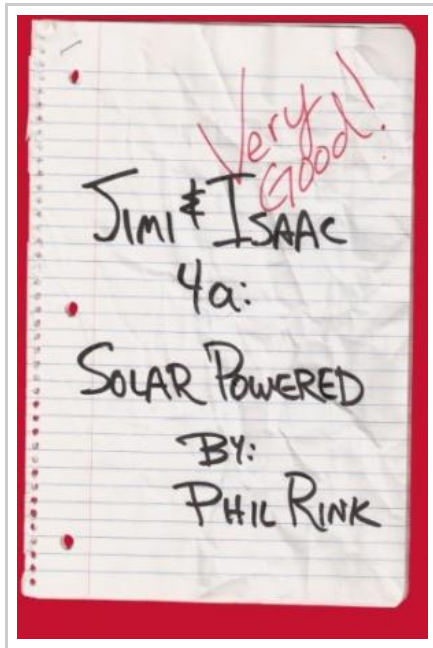 Very
Good!
JIMI & ISAAC
4a:
SOLAR POWERED
BY:
PHIL RINK